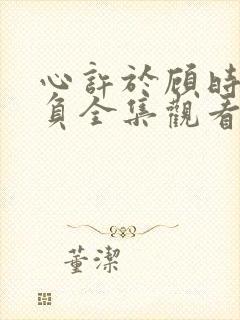 心許於顧時
負全集觀看
董潔